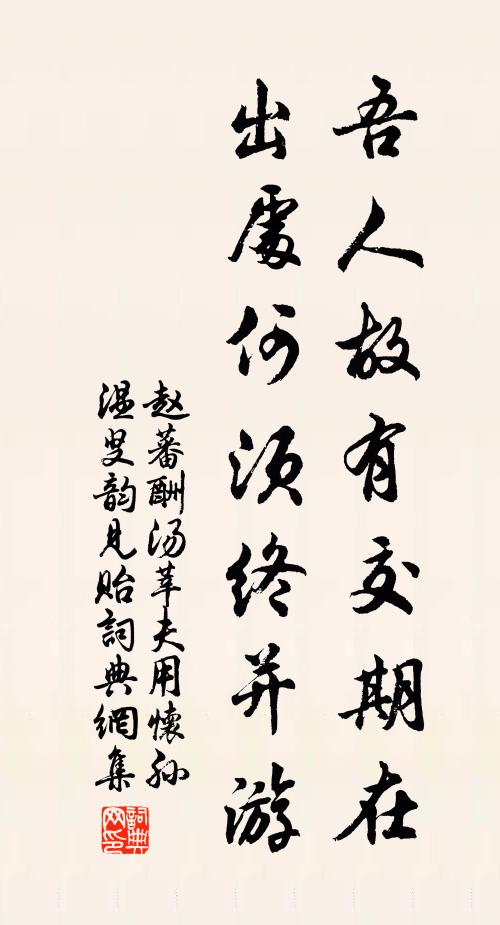 吾人故有交期在
出處何須終并游
赵蕃酬汤莘夫用懷孙
温叟韵見貽詞典網集
詞典
网印